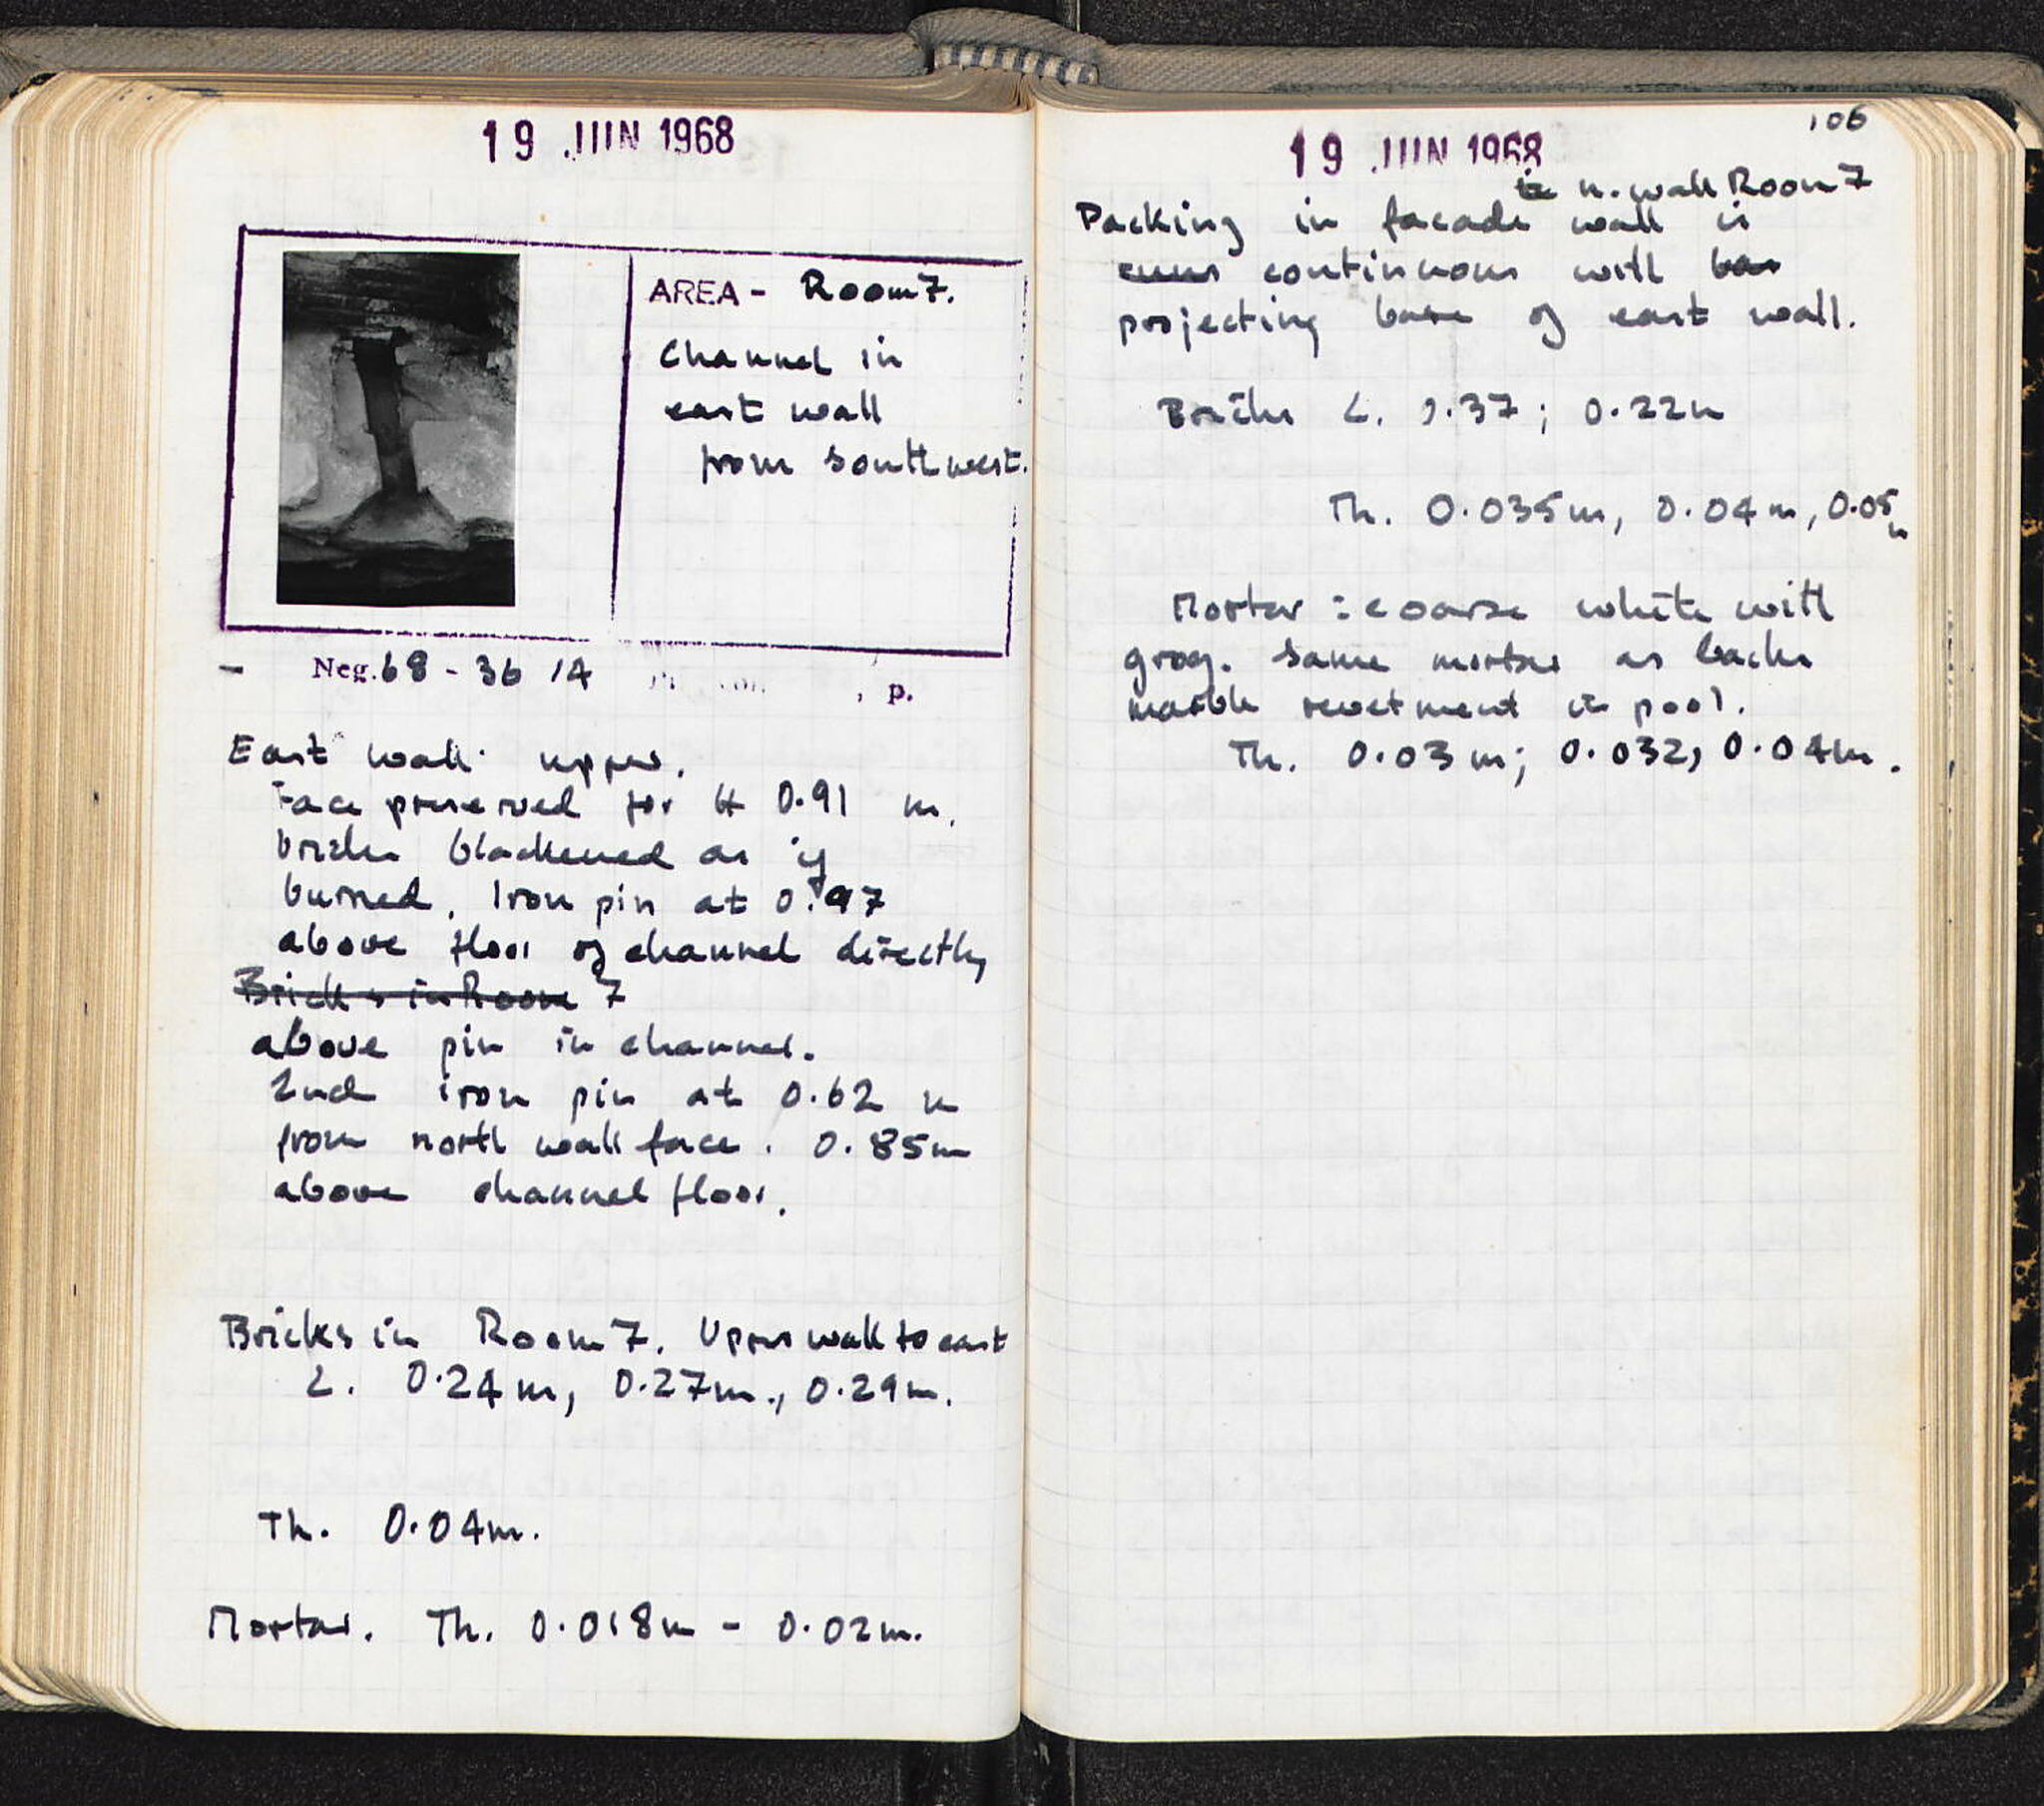 19 JUN 1968
AREA - Room 7.
Channel in
east wall
from southwest.
- Neg. 68 - 36 /4 , p.
East wall upper.
Face preserved for H 0.91 m.
bricks blackened as if
burned. Iron pin at 0.97
above floor of channel directly
Bricks in Room 7
above pin in channel.
2nd iron pin at 0.62 m
from north wall face. 0.85m
above channel floor.
Bricks in Room 7. Upper wall to east
L. 0.24m, 0.27m., 0.29m.
Th. 0.04m.
Mortar. Th. 0.018m - 0.02m.
106
19 JUN 1968
n. wall Room 7
Packing in facade wall is
continuous with
projecting base of east wall.
Bricks L. 0.37; 0.22m
Th. 0.035m, 0.04m, 0.05
m
Mortar: coarse white with
grog. Same mortar as backs
marble revetment in pool.
Th. 0.03m; 0.032, 0.04m.